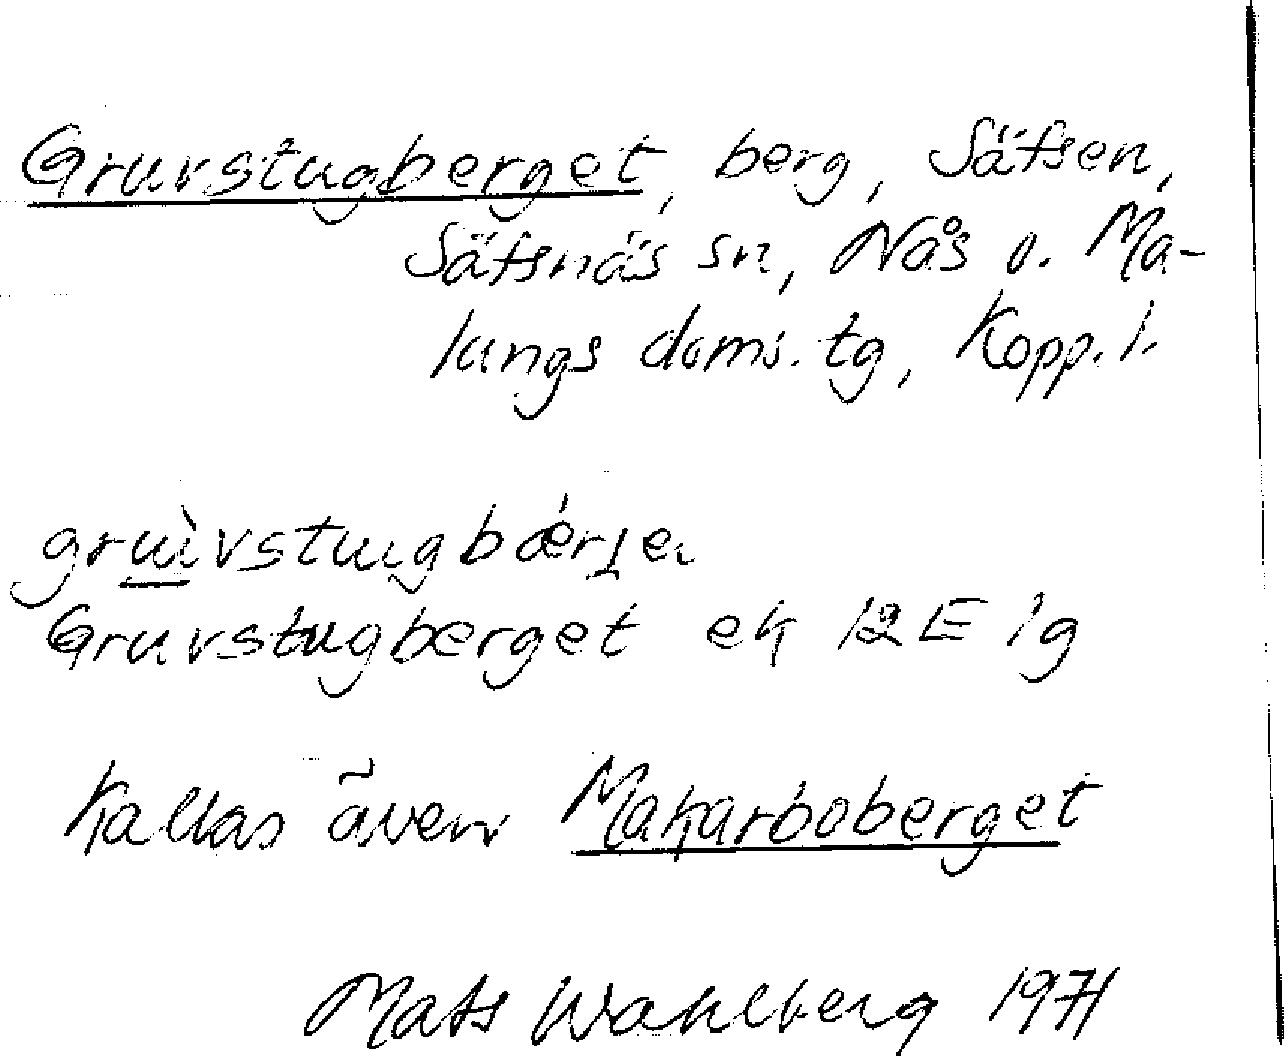 Gruvstugberget, berg, Säfsen,
Säfsnäs sn, Nås o. Ma-
lungs doms. tg, Kopp. l.
Gruvstugberget ek 12E 1g
Kallas även Makarboberget
Mats Wahlberg 1971